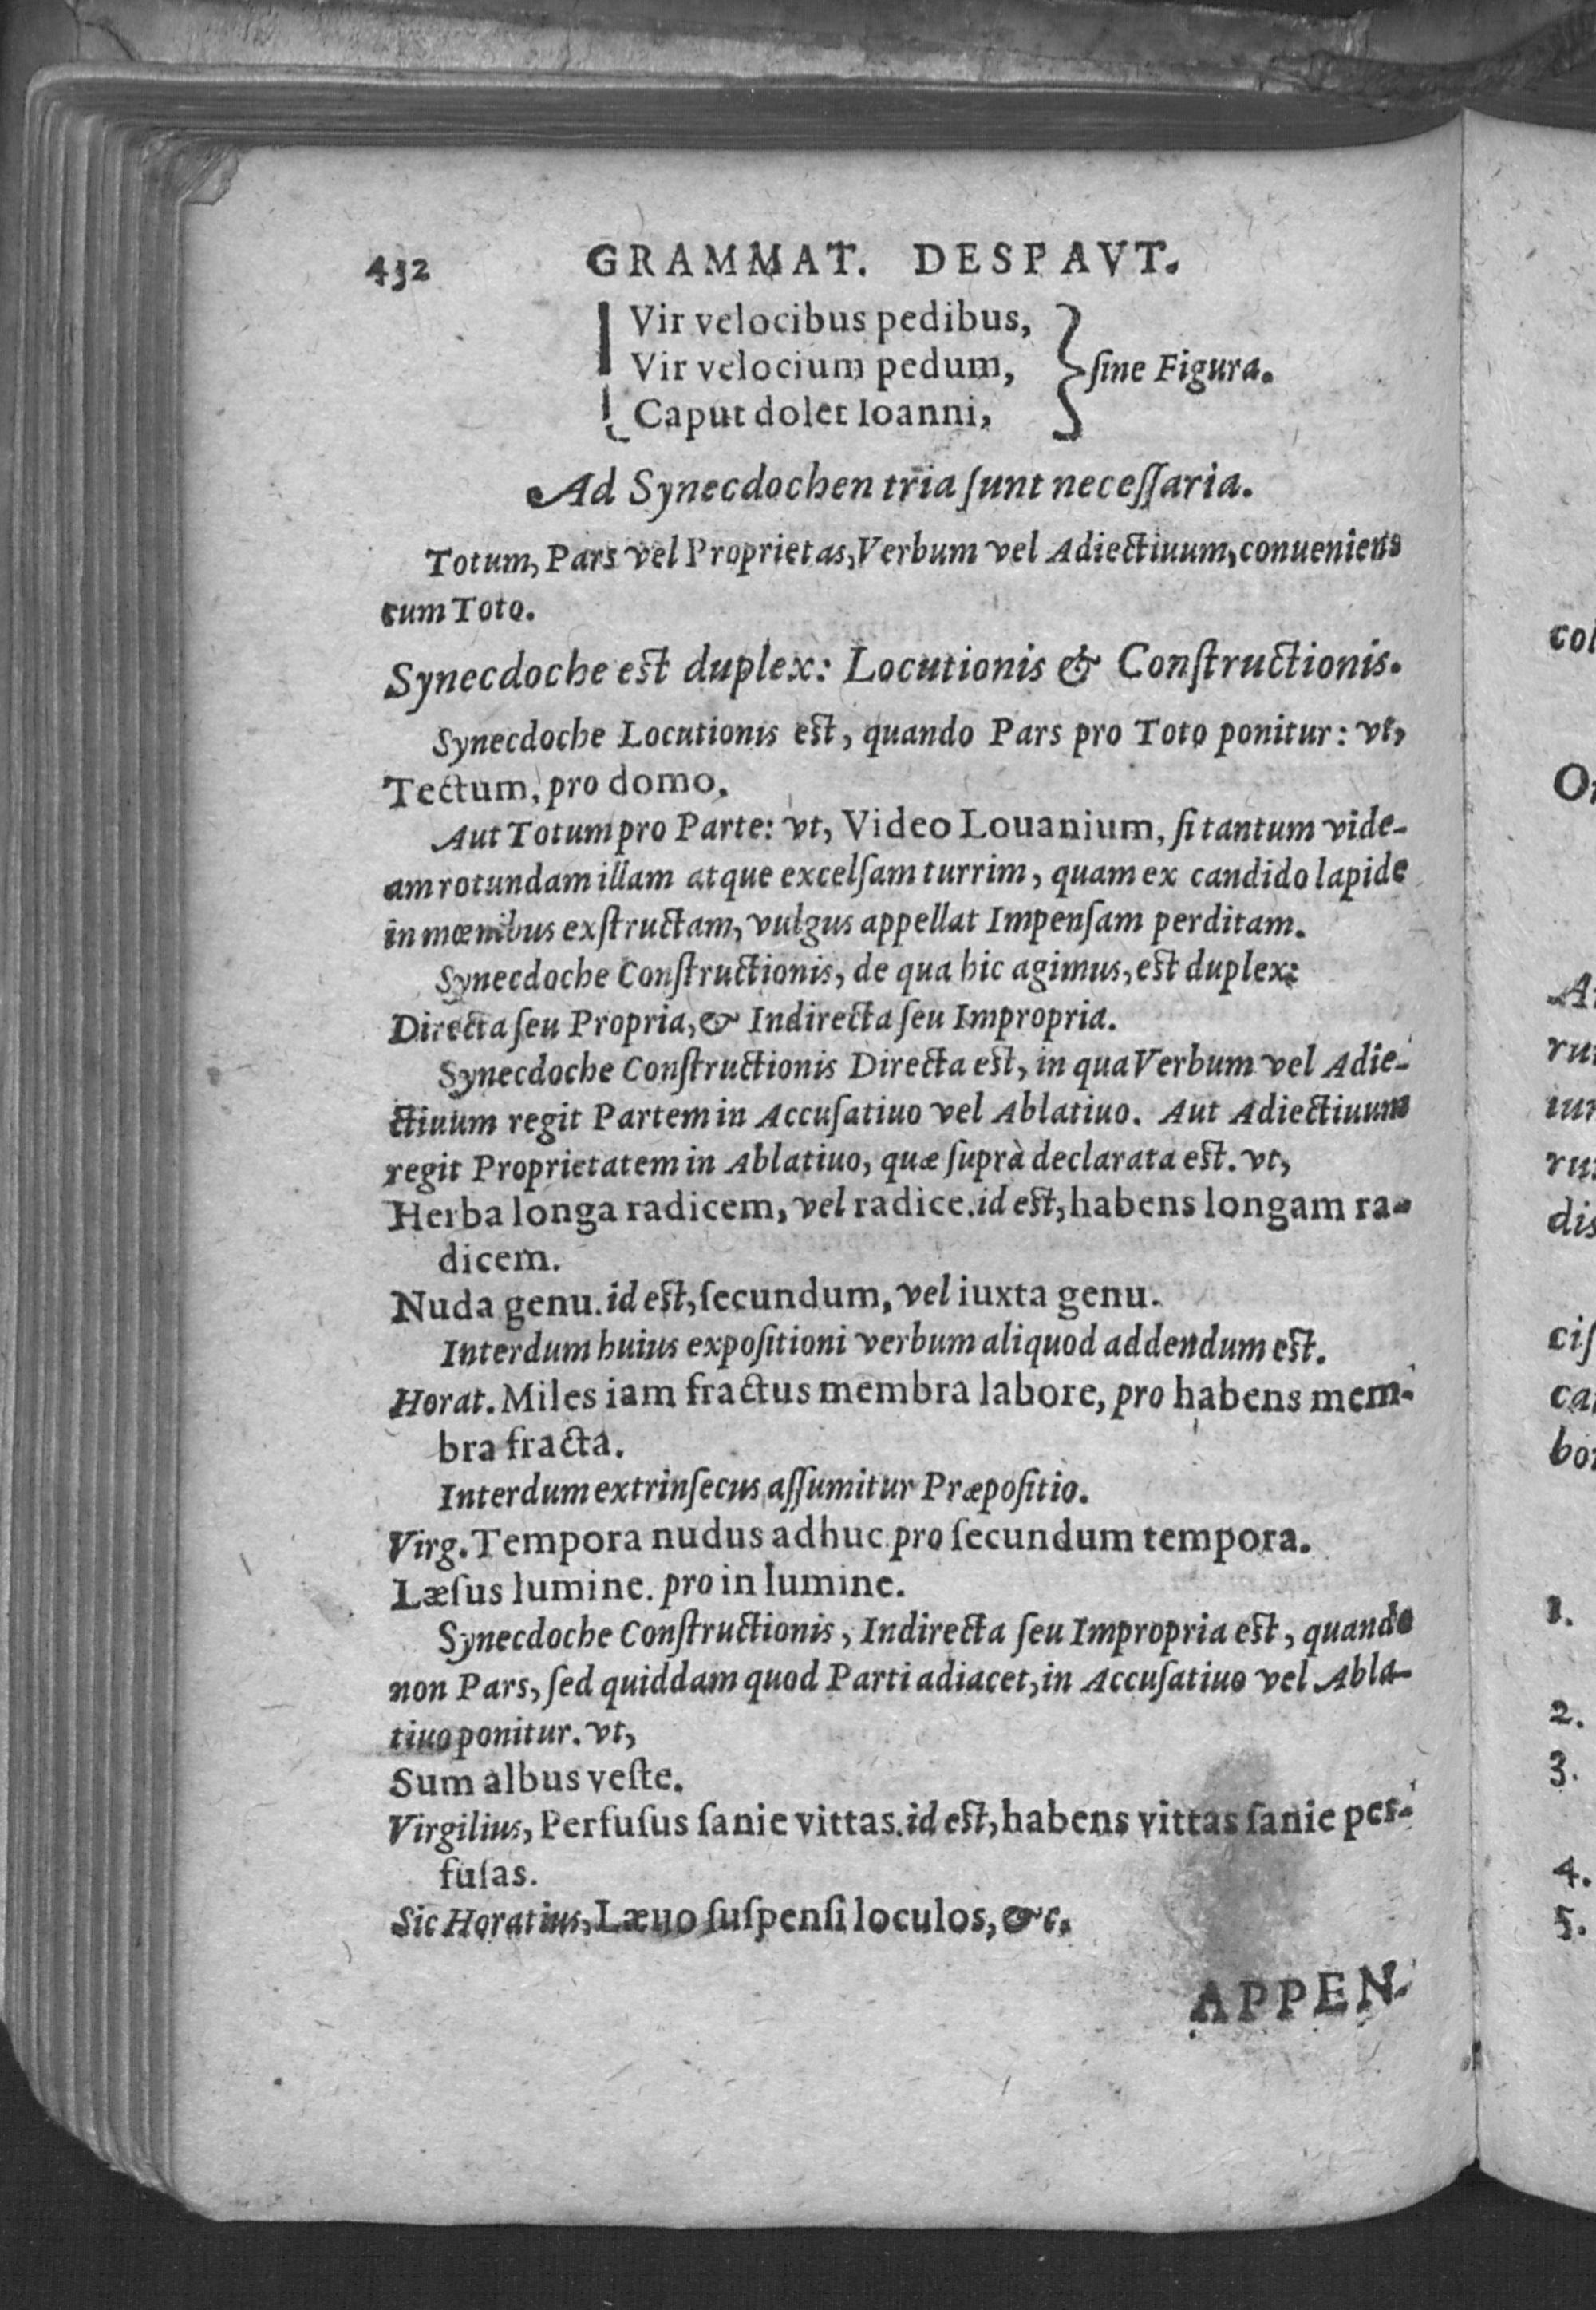 432 GRAMMAT. DESPAVT.
Vir velocibus pedibus,
Vir velocium pedum, } ſine Figura.
Caput dolet Ioanni,
Ad Synecdochen tria ſunt neceſſaria.
Totum, Pars vel Proprietas, Verbum vel Adiectiuum, conueniens
cum Toto.
Synecdoche est duplex: Locutionis & Conſtructionis.
Synecdoche Locutionis est, quando Pars pro Toto ponitur: vt,
Tectum, pro domo.
Aut Totum pro Parte: vt, Video Louanium, ſi tantum vide-
am rotundam illam atque excelſam turrim, quam ex candido lapide
in mœnibus exſtructam, vulgus appellat Impenſam perditam.
Synecdoche Conſtructionis, de qua hic agimus, est duplex:
Directa ſeu Propria, & Indirecta ſeu Impropria.
Synecdoche Conſtructionis Directa est, in qua Verbum vel Adie-
ctiuum regit Partem in Accuſatiuo vel Ablatiuo. Aut Adiectiuum
regit Proprietatem in Ablatiuo, quæ ſuprà declarata est. vt,
Herba longa radicem, vel radice. id est, habens longam ra-
dicem.
Nuda genu. id est, ſecundum, vel iuxta genu.
Interdum huius expoſitioni verbum aliquod addendum est.
Horat. Miles iam fractus membra labore, pro habens mem-
bra fracta.
Interdum extrinſecus aſſumitur Præpoſitio.
Virg. Tempora nudus adhuc. pro ſecundum tempora.
Læſus lumine. pro in lumine.
Synecdoche Conſtructionis, Indirecta ſeu Impropria est, quando
non Pars, ſed quiddam quod Parti adiacet, in Accuſatiuo vel Abla-
tiuo ponitur. vt,
Sum albus veſte.
Virgilius, Perfuſus ſanie vittas. id est, habens vittas ſanie per-
fuſas.
Sic Horatius, Læuo ſuſpenſi loculos, &c.
APPEN-
col
rum
dis
ciſ
1.
2.
3.
4.
5.